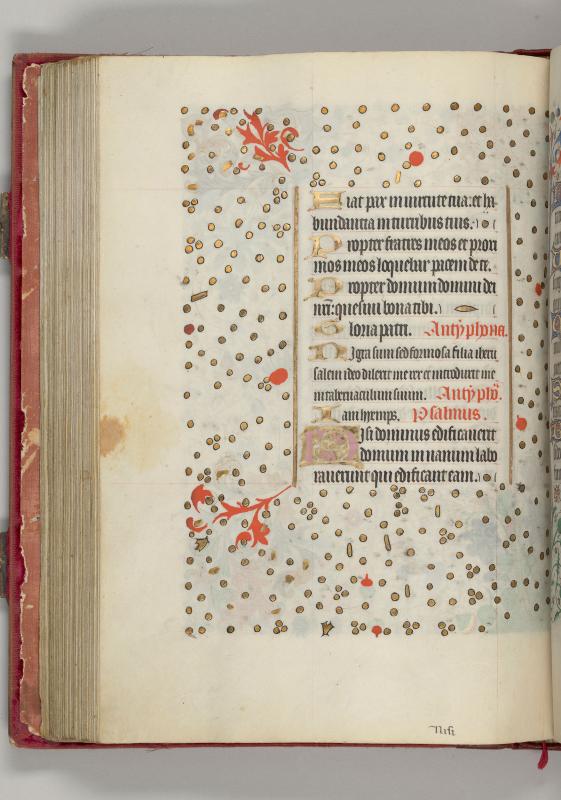 Fiat pax in uirtute tua: et ha
bundantia in turribus tuis.
Propter fratres meos et proxi
mos meos loquebar pacem de te.
Propter domum domini dei
nr̄i: quesiui bona tibi.
Gloria patri. Antyphona.
Nigra sum sed formosa filia iheru
salem ideo dilexit me rex et introduxit me
in tabernaculum suum. Antypho.
Iam hyemps. Psalmus.
Nisi dominus edificauerit
domum in uanum labo
rauerunt qui edificant eam.
Nisi